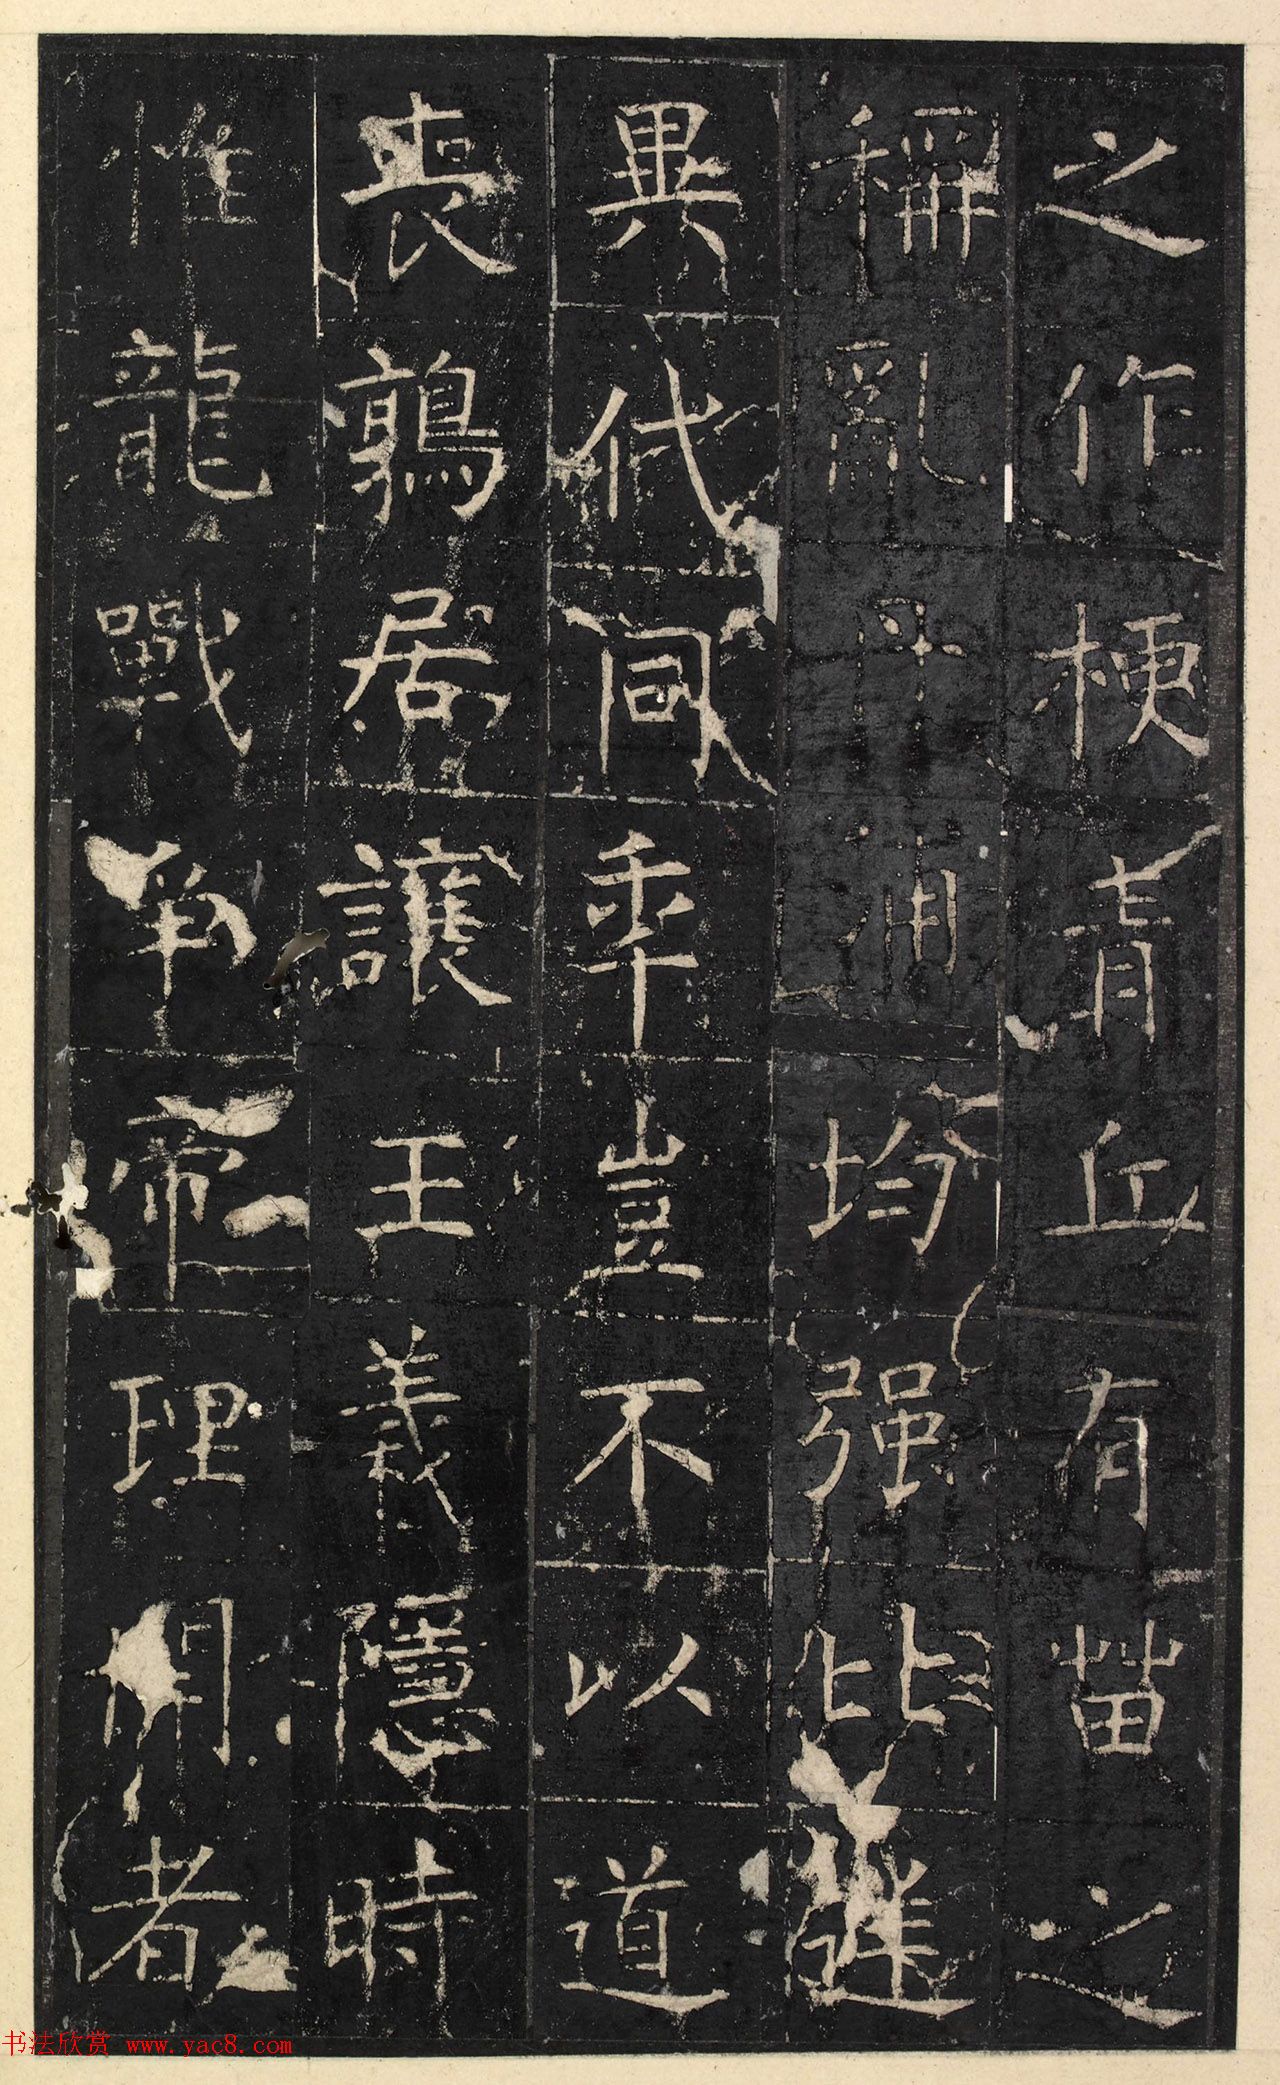 之作梗青丘有苗之
稱亂丹浦均强比蹤
異代同乖豈不以道
喪鶉居讓王義隱時
惟龍戰爭帝理開者
书法欣赏 www.yac8.com